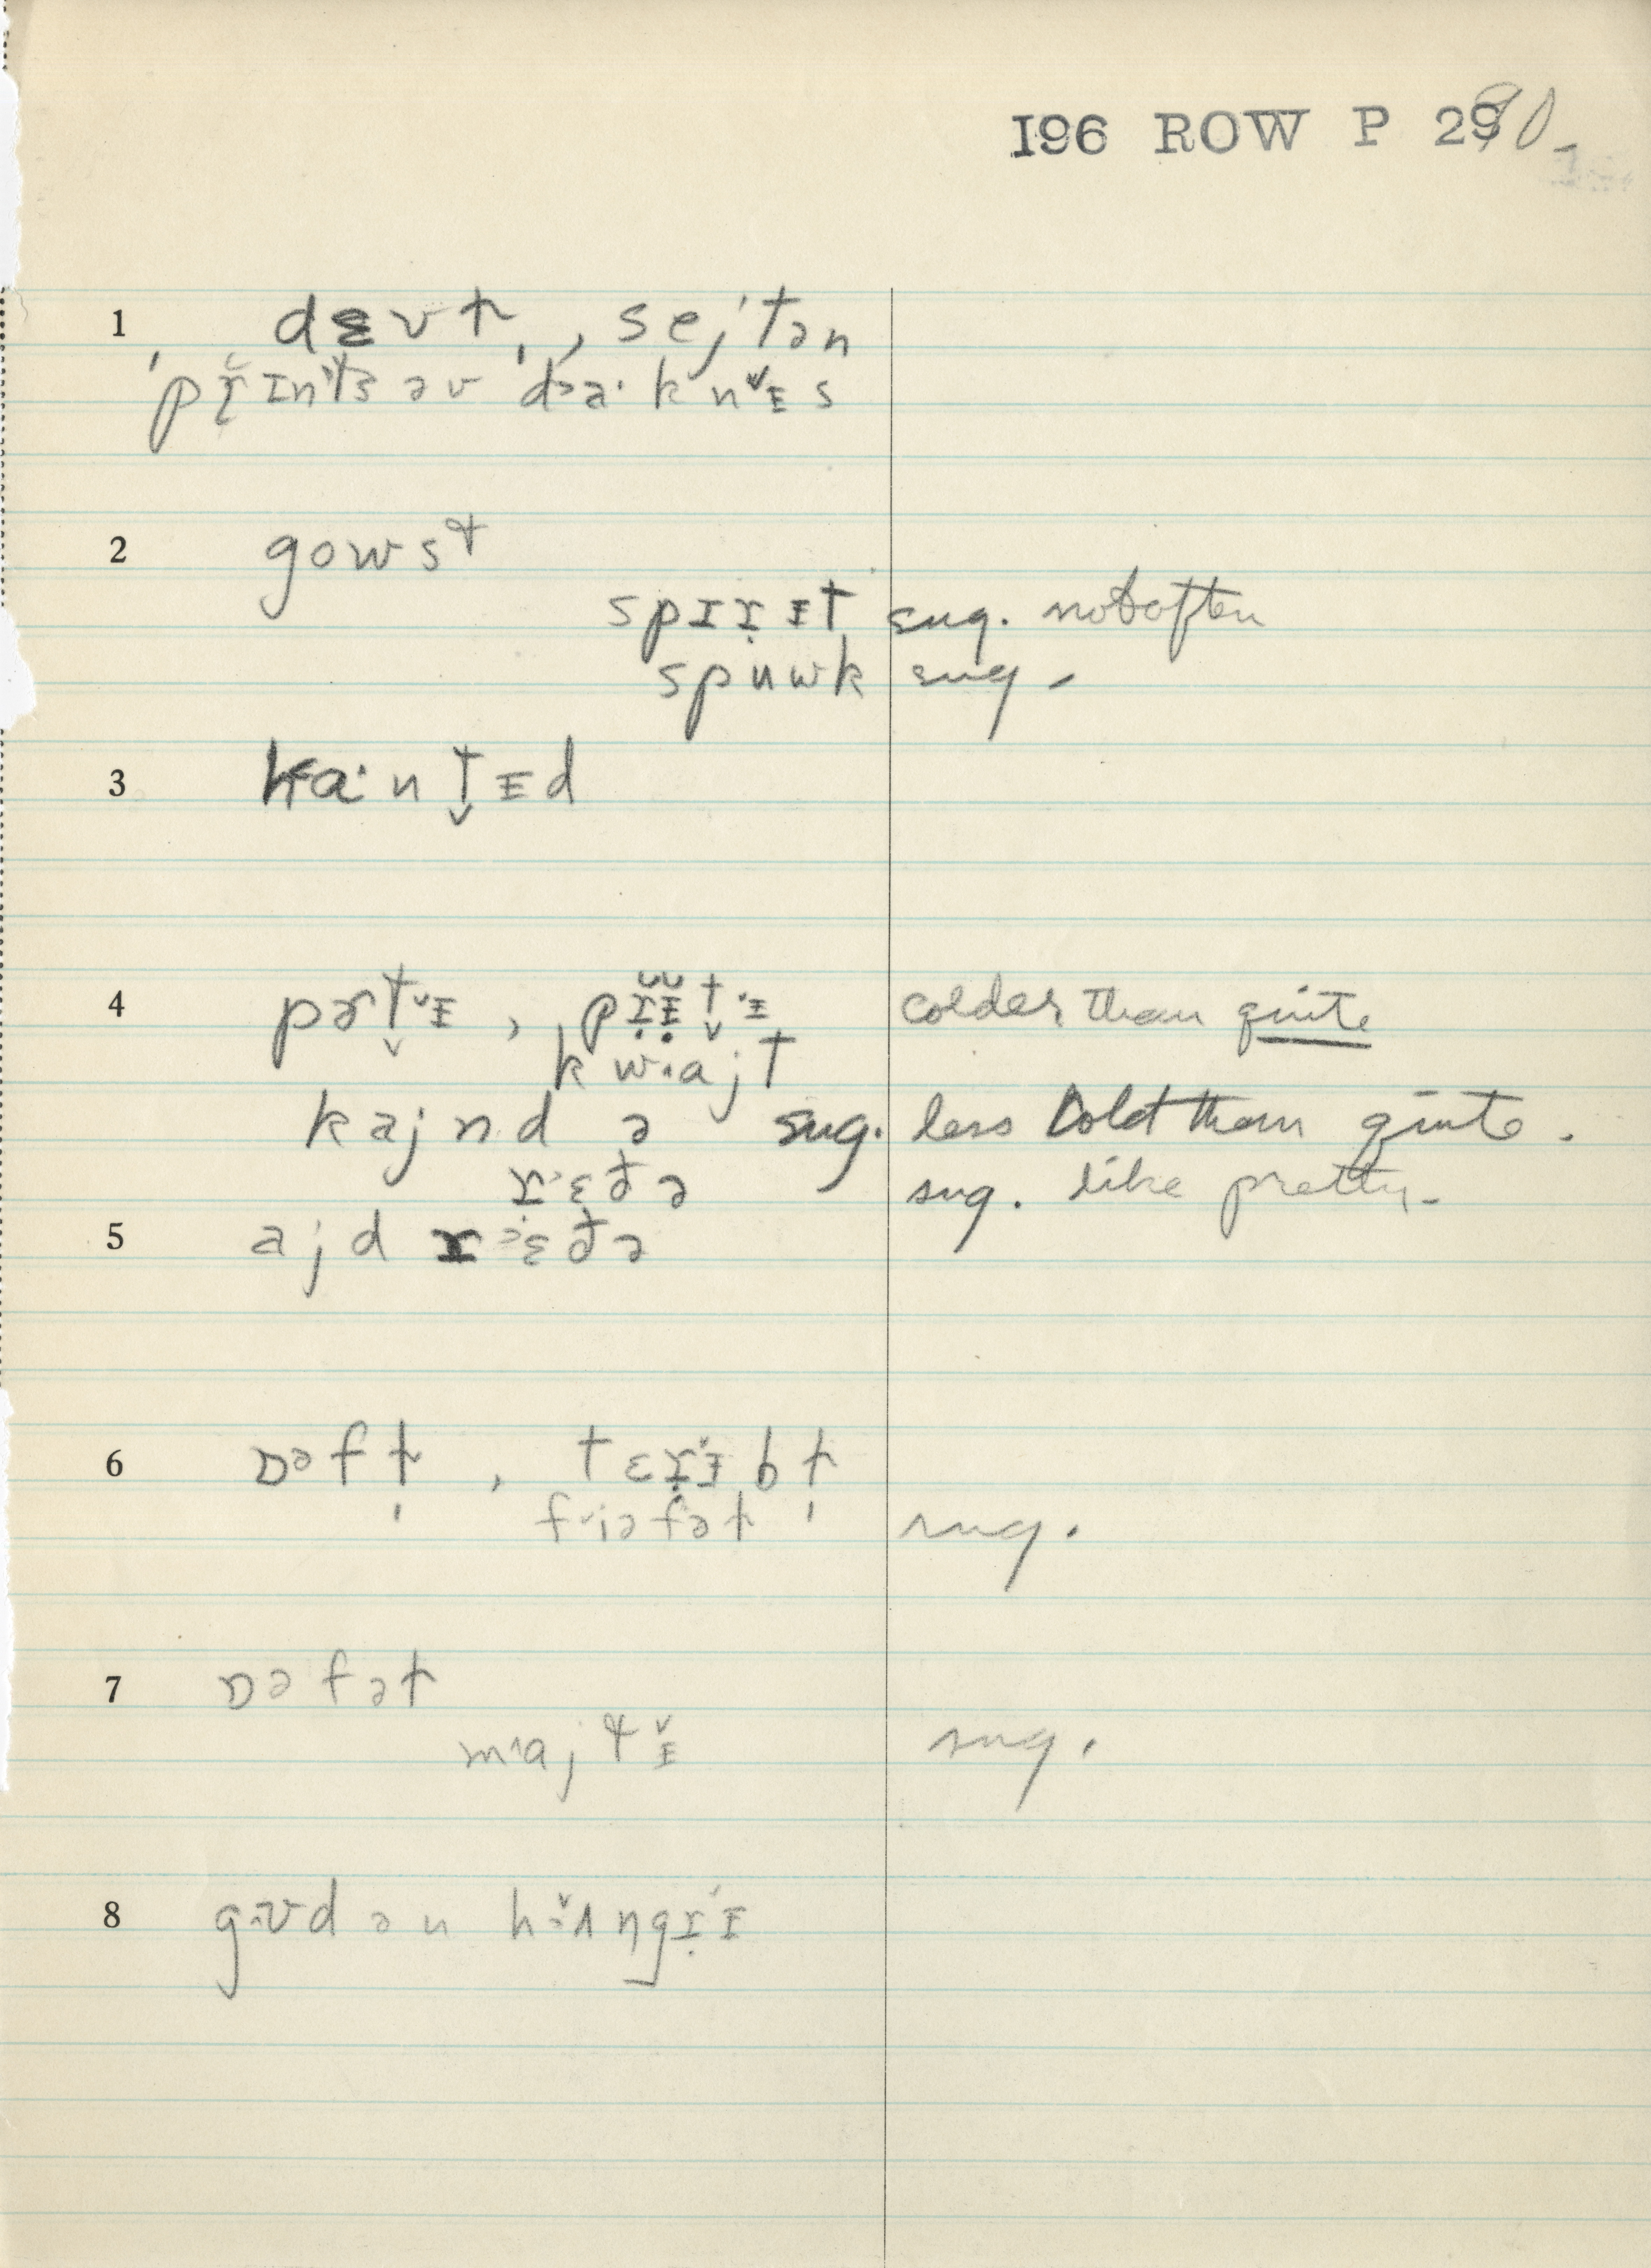 I96 ROW P 290
1 dɛvɫ̩, sejtən
ˈpɹ̌ɪntˢ əv ˈdɑˑknᵻs
2 gowsƚ
spɪɹ̣ᵻt sug. not often
spuwk sug.
3 hɑˑnt̬ᵻd
4 pɚt̬ᵻ, pɹ̣̆ᵻ̣̆t̬ᵻ colder than quite
kwajt
kajnd ə sug. less cold than quite.
ɹɛðə sug. like pretty.
5 ajd ɹɛðə
6 ɒəfɫ̩, tɛɹ̣ᵻbɫ̩
fiəfəɫ sug.
7 ɒəfəɫ
majƚᵻ sug.
8 gʊd ən hʌŋgɹ̣ᵻ